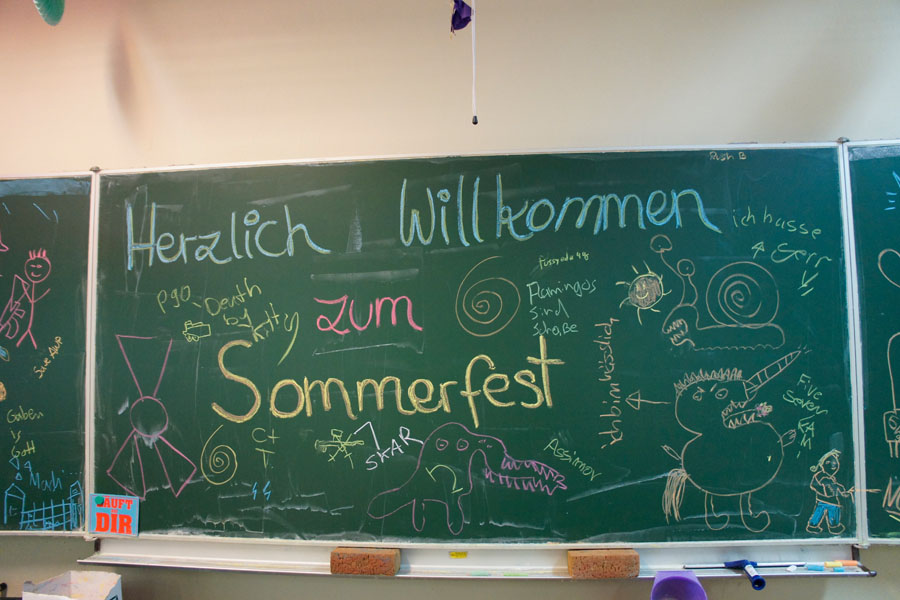 Rush B
Herzlich Willkommen
ich hasse
Gerr
fussyode 48
P90
Death
by
Kitty
zum
Flamingos
sind
Scheiße
Sommerfest
ich bin hässlich
Five
Seven
SKAR
Assimov
CT
T
Gaben
is
Gott
LÄUFT
BEI
DIR